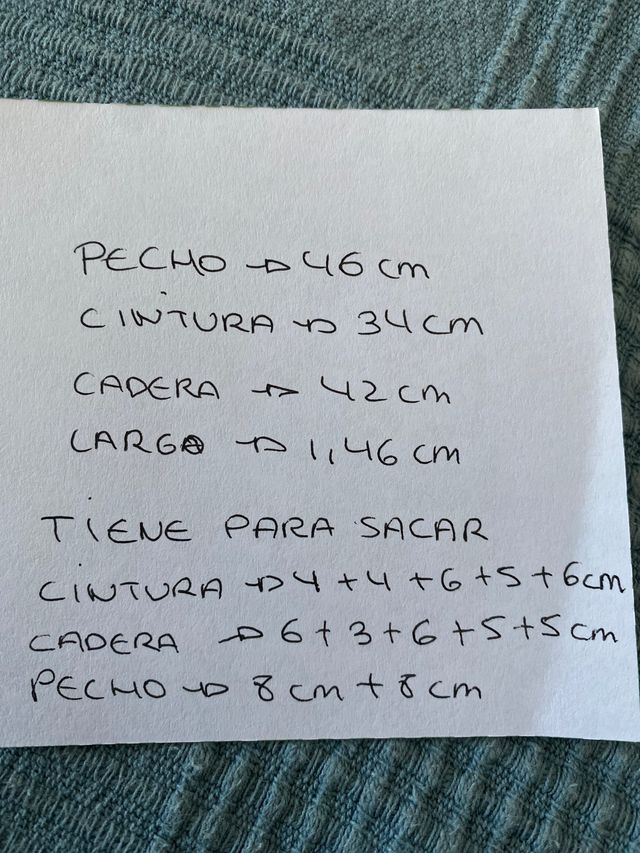 PECHO → 46 cm
CINTURA → 34 cm
CADERA → 42 cm
LARGO → 1,46 cm
TIENE PARA SACAR
CINTURA → 4 + 4 + 6 + 5 + 6 cm
CADERA → 6 + 3 + 6 + 5 + 5 cm
PECHO → 8 cm + 8 cm